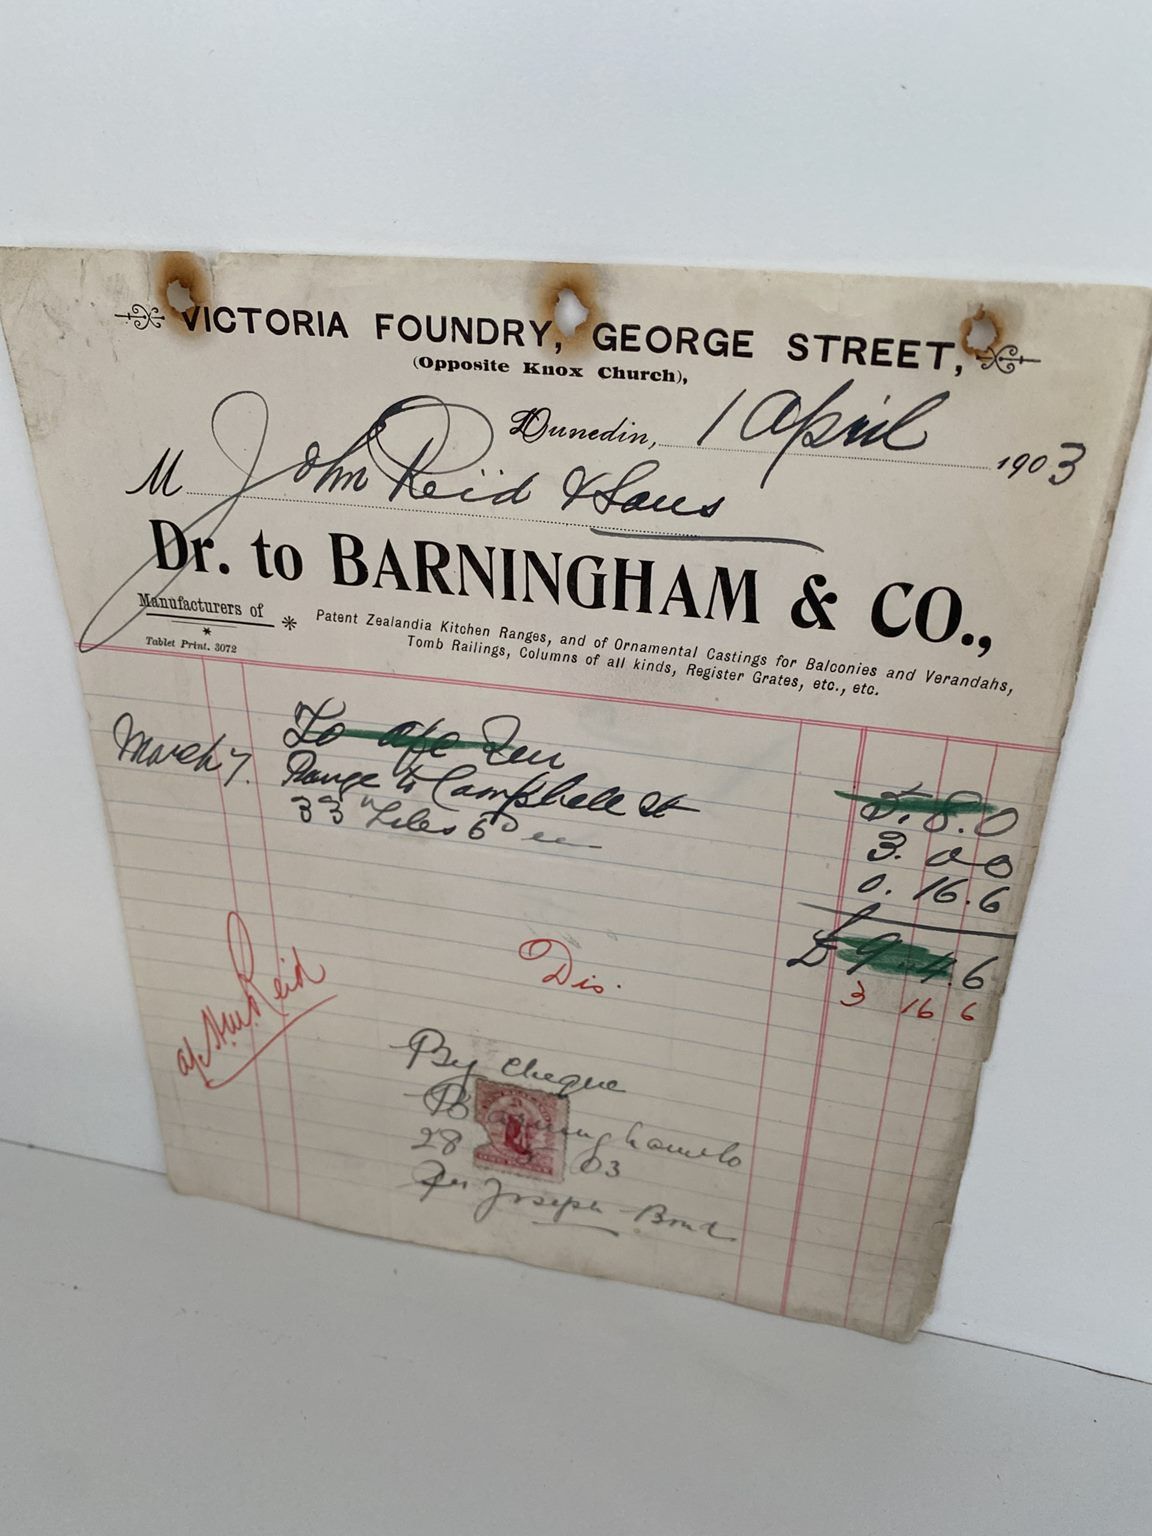 VICTORIA FOUNDRY, GEORGE STREET,
(Opposite Knox Church),
Dunedin, 1 April 1903
M John Reid & Sons
Dr. to BARNINGHAM & CO.,
Manufacturers of
Patent Zealandia Kitchen Ranges, and of Ornamental Castings for Balconies and Verandahs,
Tomb Railings, Columns of all kinds, Register Grates, etc., etc.
Tablet Print. 3072
To a/c Ren 5. 8. 0
March 7. Range to Campbell St 3. 0 0
33 Tiles 6D 0. 16. 6
£ 9 4. 6
Dis. 3 16 6
Reid
By Cheque
Barningham & Co
28 03
Per Joseph Bond